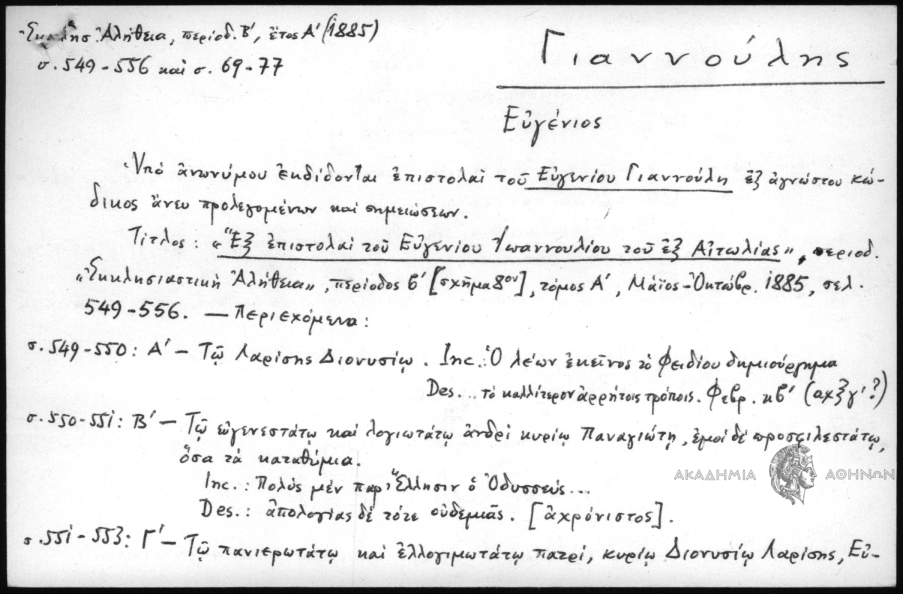 Ἐκκλησ. Ἀλήθεια, περίοδ. Β', ἔτος Α' (1885)
σ. 549-556 καὶ σ. 69-77
Γιαννούλης
Εὐγένιος
Ὑπὸ ἀνωνύμου ἐκδίδονται ἐπιστολαὶ τοῦ Εὐγενίου Γιαννούλη ἐξ ἀγνώστου κώ-
δικος ἄνευ προλεγομένων καὶ σημειώσεων.
Τίτλος: «Ἓξ ἐπιστολαὶ τοῦ Εὐγενίου Ἰωαννουλίου τοῦ ἐξ Αἰτωλίας», περιοδ.
«Ἐκκλησιαστικὴ Ἀλήθεια», περίοδος β' [σχῆμα 8ον], τόμος Α', Μάϊος-Ὀκτώβρ. 1885, σελ.
549-556. — Περιεχόμενα:
σ. 549-550: Α' — Τῷ Λαρίσης Διονυσίῳ. Inc.: Ὁ λέων ἐκεῖνος τὸ Φειδίου δημιούργημα
Des... τὸ καλλίτερον ἀρρήτοις τρόποις. Φεβρ. κβ' (αχξγ'?)
σ. 550-551: Β' — Τῷ εὐγενεστάτῳ καὶ λογιωτάτῳ ἀνδρὶ κυρίῳ Παναγιώτῃ, ἐμοὶ δὲ προσφιλεστάτῳ,
ὅσα τὰ καταθύμια.
Inc.: Πολὺς μὲν παρ' Ἕλλησιν ὁ Ὀδυσσεύς...
Des.: ἀπολογίας δέ τότε οὐδεμιᾶς. [ἀχρόνιστος].
ΑΚΑΔΗΜΙΑ ΑΘΗΝΩΝ
σ. 551-553: Γ' — Τῷ πανιερωτάτῳ καὶ ἐλλογιμωτάτῳ πατρί, κυρίῳ Διονυσίῳ Λαρίσης, Εὐ-